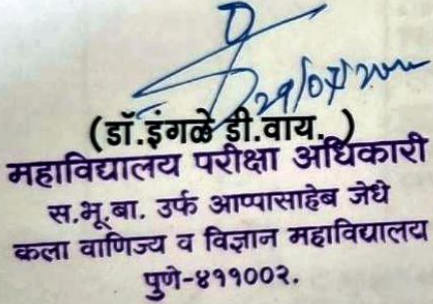 (डॉ.इंगळे डी.वाय. )
महाविद्यालय परीक्षा अधिकारी
स.भू.बा. उर्फ आप्पासाहेब जेधे
कला वाणिज्य व विज्ञान महाविद्यालय
पुणे-४११००२.